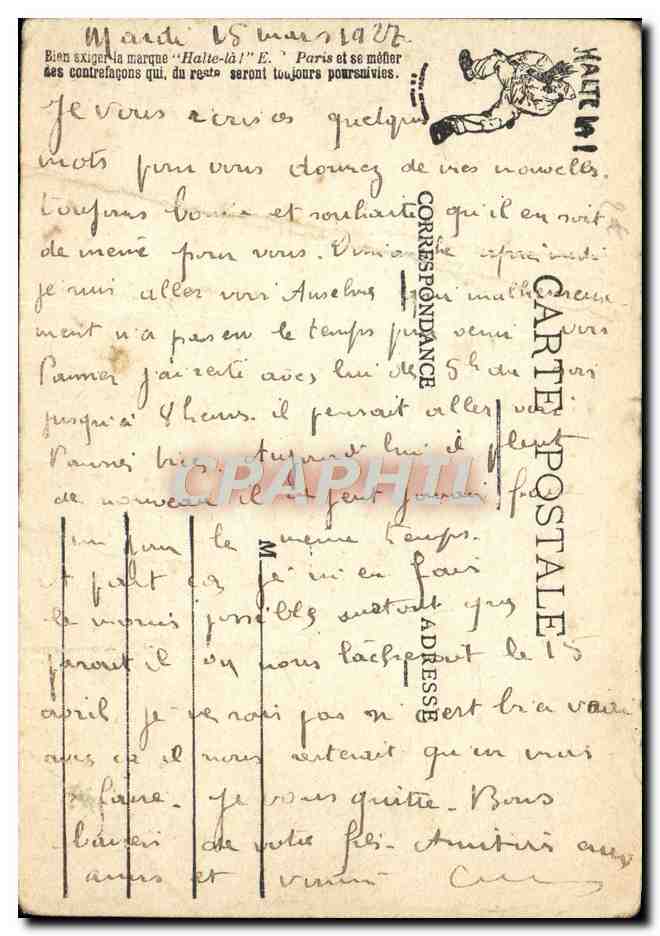 Mardi 15 mars 1927
Bien exiger la marque "Halte-là!" E. Paris et se méfier
des contrefaçons qui, du reste seront toujours poursuivies.
HALTE LA!
CARTE POSTALE
CORRESPONDANCE
ADRESSE
M
CPAPHIL
Je vous écris quelques
mots pour vous donnez de mes nouvelles.
toujours bonne et souhaite qu'il en soit
de même pour vous. Dimanche après midi
je suis aller voir Anselme qui malheureuse
ment n'a pas eu le temps pour venir vers
j'ai resté avec lui de 5h du soir
jusqu'à 8 heures. il pensait aller voir
Aujourd'hui il pleut
de nouveau il ne peut jamais faire
un jour le même temps.
A part ça je m'en fais
le moins possible surtout que
parait il on nous lâcherait le 15
avril je ne sais pas si c'est bien vrai
avec ça il nous resterait qu'un mois
a faire. Je vous quitte. Bons
baisers de votre fils. Amitiés aux
amis et voisins